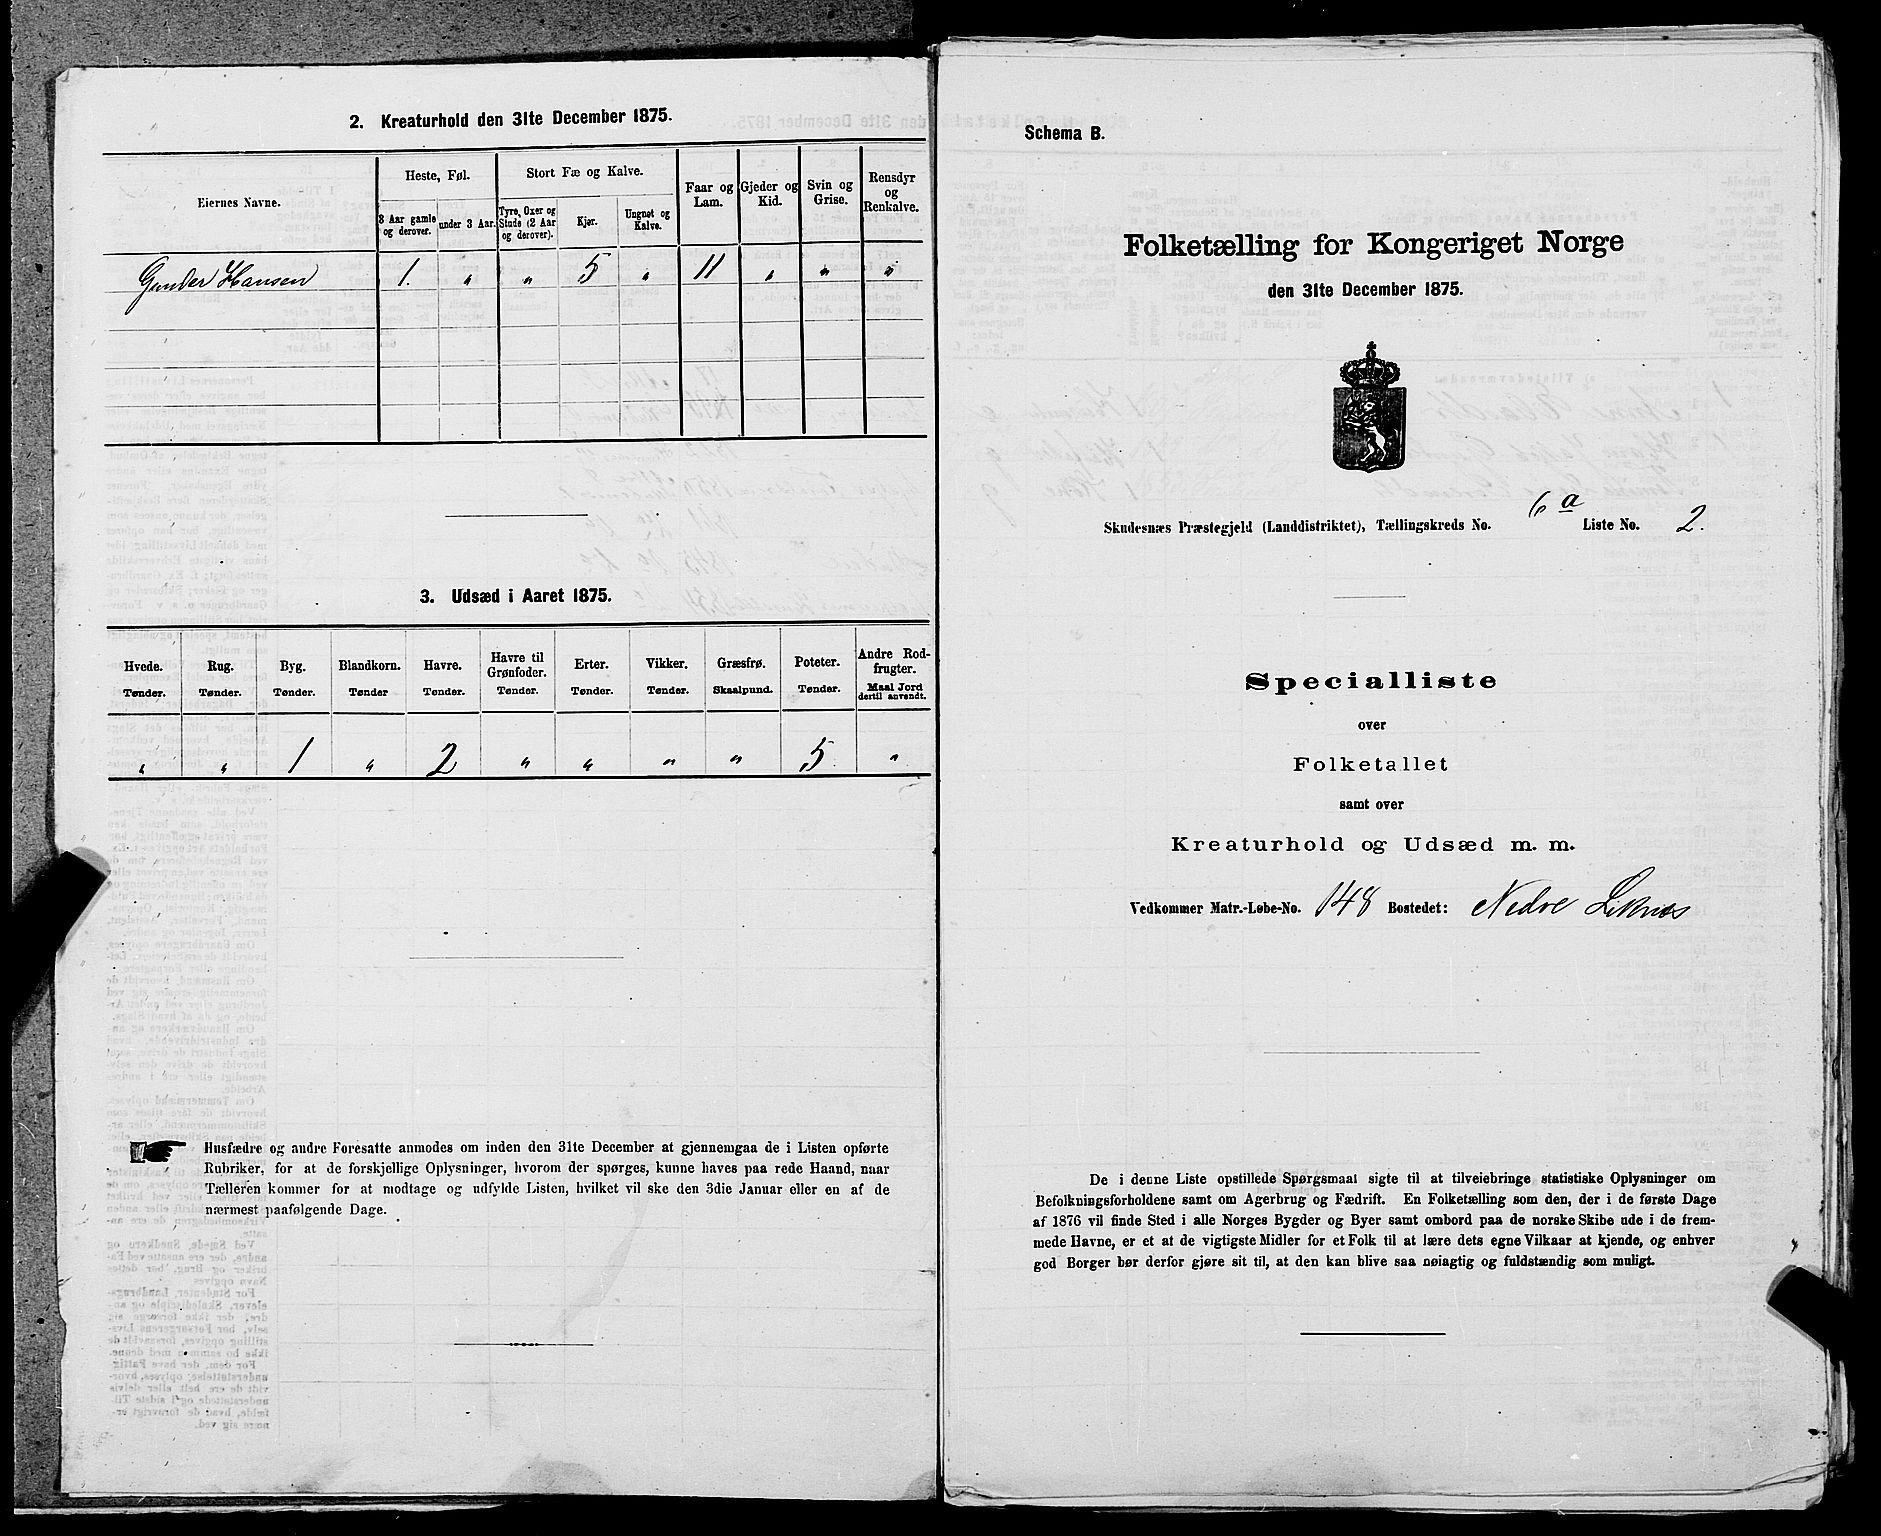 2. Kreaturhold den 31te December 1875.
Eiernes Navne. Heste, Føl. Stort Fæ og Kalve. Faar og Lam. Gjeder og Kid. Svin og Grise. Rensdyr og Renkalve.
3 Aar gamle og derover. under 3 Aar. Tyre, Oxer og Studs (2 Aar og derover). Kjør. Ungnøt og Kalve.
Gunder Hansen 1. " " 5 " 11 " " "
3. Udsæd i Aaret 1875.
Hvede. Rug. Byg. Blandkorn. Havre. Havre til Grønfoder. Erter. Vikker. Græsfrø. Poteter. Andre Rodfrugter.
Tønder. Tønder. Tønder. Tønder Tønder. Tønder. Tønder. Tønder. Skaalpund. Tønder. Maal Jord dertil anvendt.
" " 1 " 2 " " " " 5 "
Husfædre og andre Foresatte anmodes om inden den 31te December at gjennemgaa de i Listen opførte
Rubriker, for at de forskjellige Oplysninger, hvorom der spørges, kunne haves paa rede Haand, naar
Tælleren kommer for at modtage og udfylde Listen, hvilket vil ske den 3die Januar eller en af de
nærmest paafølgende Dage.
Schema B.
Folketælling for Kongeriget Norge
den 31te December 1875.
Skudesnæs Præstegjeld (Landdistriktet), Tællingskreds No. 6a Liste No. 2.
Specialliste
over
Folketallet
samt over
Kreaturhold og Udsæd m. m.
Vedkommer Matr.-Løbe-No. 148 Bostedet: Nedre Liknæs
De i denne Liste opstillede Spørgsmaal sigte til at tilveiebringe statistiske Oplysninger om
Befolkningsforholdene samt om Agerbrug og Fædrift. En Folketælling som den, der i de første Dage
af 1876 vil finde Sted i alle Norges Bygder og Byer samt ombord paa de norske Skibe ude i de frem-
mede Havne, er et at de vigtigste Midler for et Folk til at lære dets egne Vilkaar at kjende, og enhver
god Borger bør derfor gjøre sit til, at den kan blive saa nøiagtig og fuldstændig som muligt.